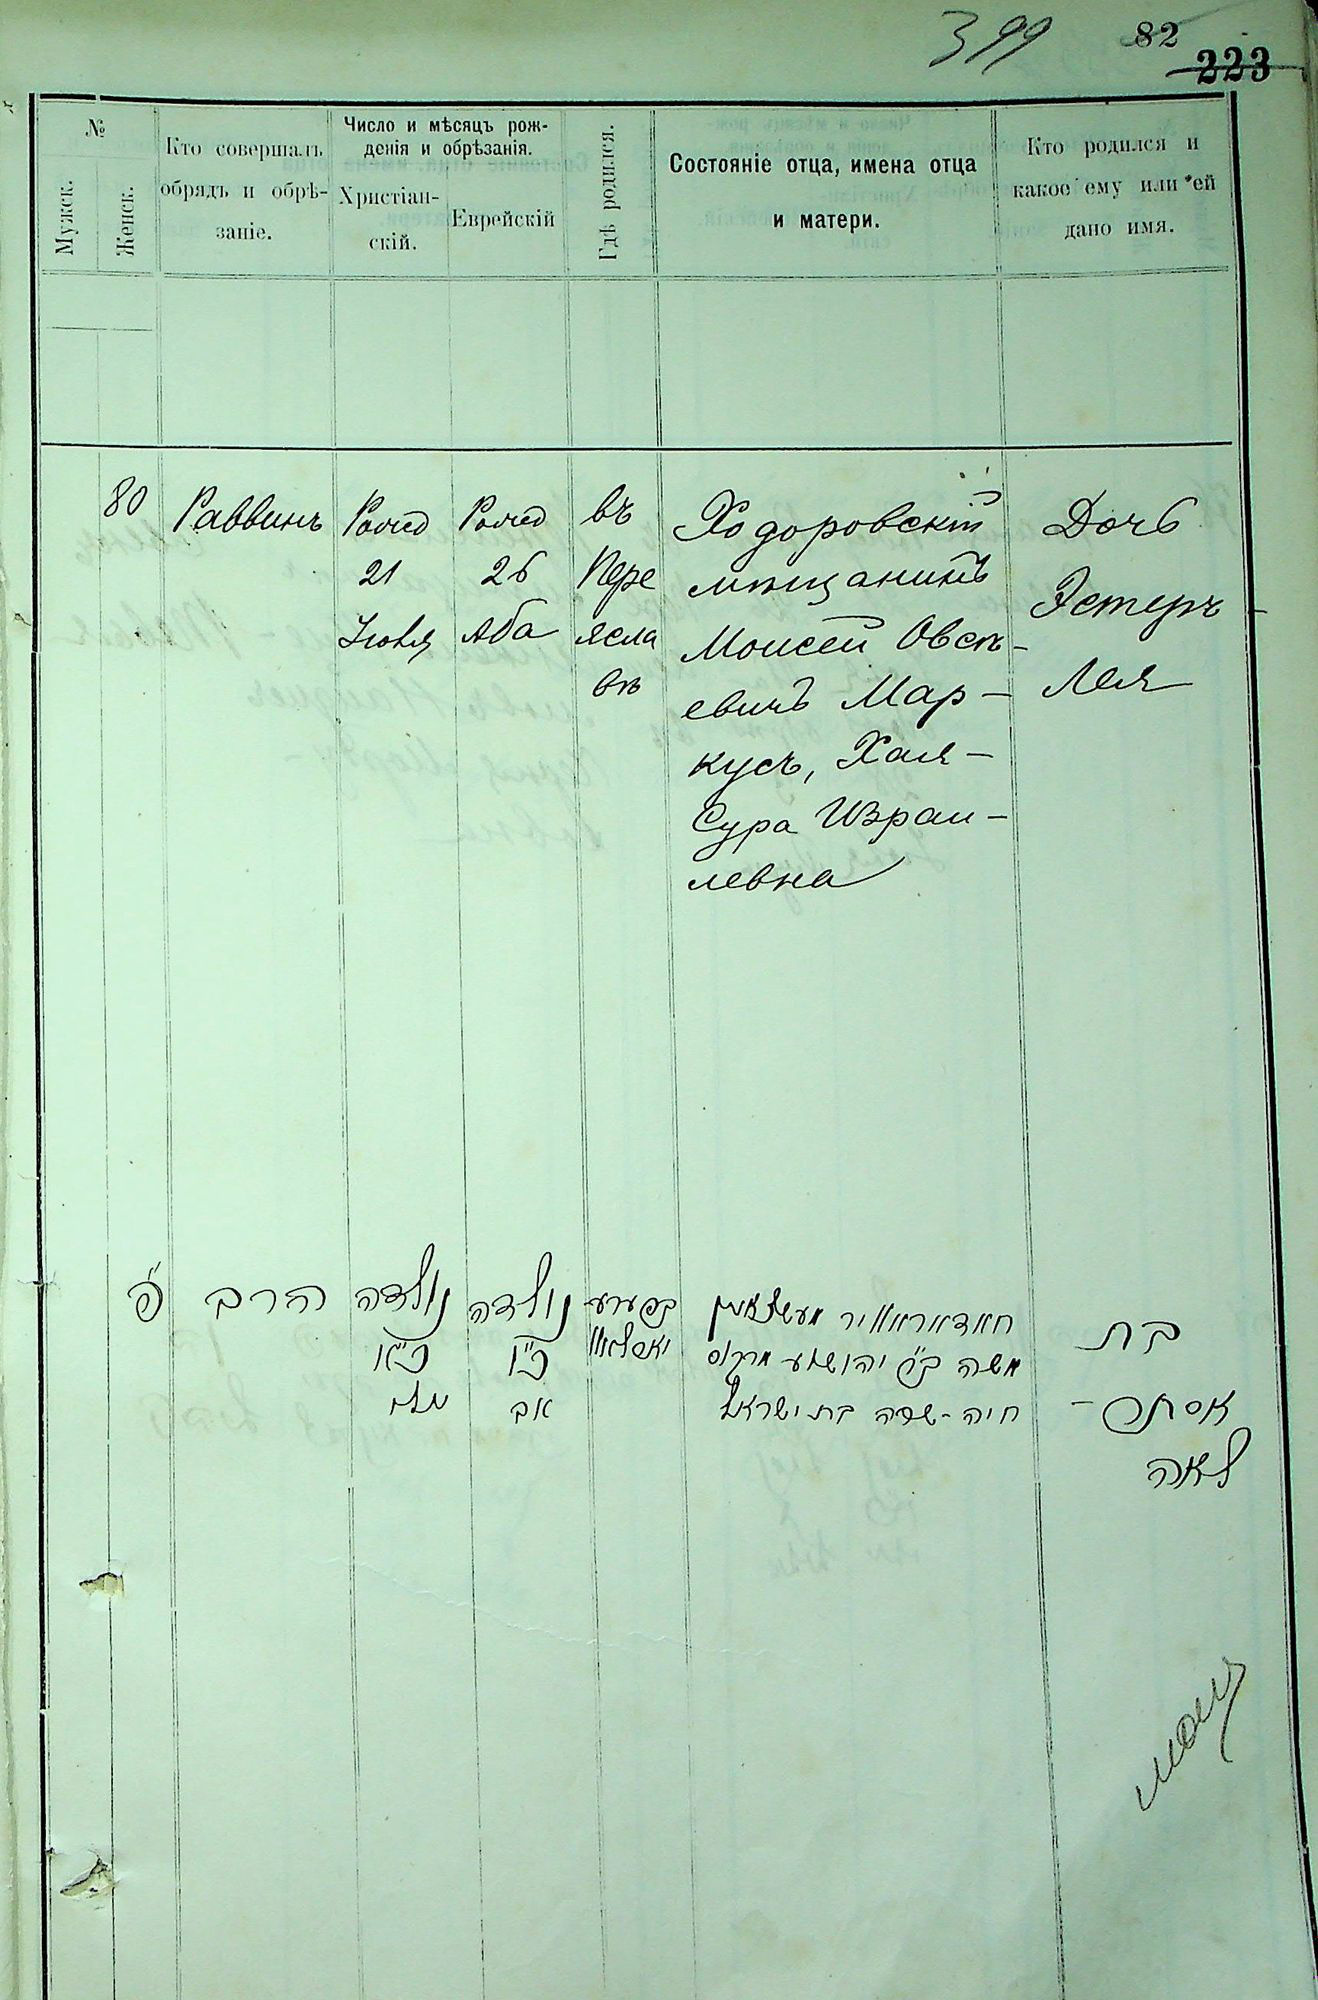 399
82
223
№
Мужск.
Женск.
Кто совершалъ
обрядъ и обрѣ-
заніе.
Число и мѣсяцъ рож-
денія и обрѣзанія.
Христіан-
скій.
Еврейскій
Гдѣ родился.
Состояніе отца, имена отца
и матери.
Кто родился и
какое ему или ей
дано имя.
80
Раввинъ
Ражд
21
Іюля
Ражд
26
Аба
въ
Пере
ясла
вѣ
Ходоровскій
мѣщанинъ
Моисей Овсѣ-
евичъ Мар-
кусъ, Хая-
Сура Израи-
левна
Дочь
Эстеръ-
Лея
פ
הרב
נולדה
כ״א
נולדה
כ״ו
אב
בפערע
משה ב״ר יהושוע מרקוס
חיה-שרה בת ישראל
בת
אסתר-
לאה